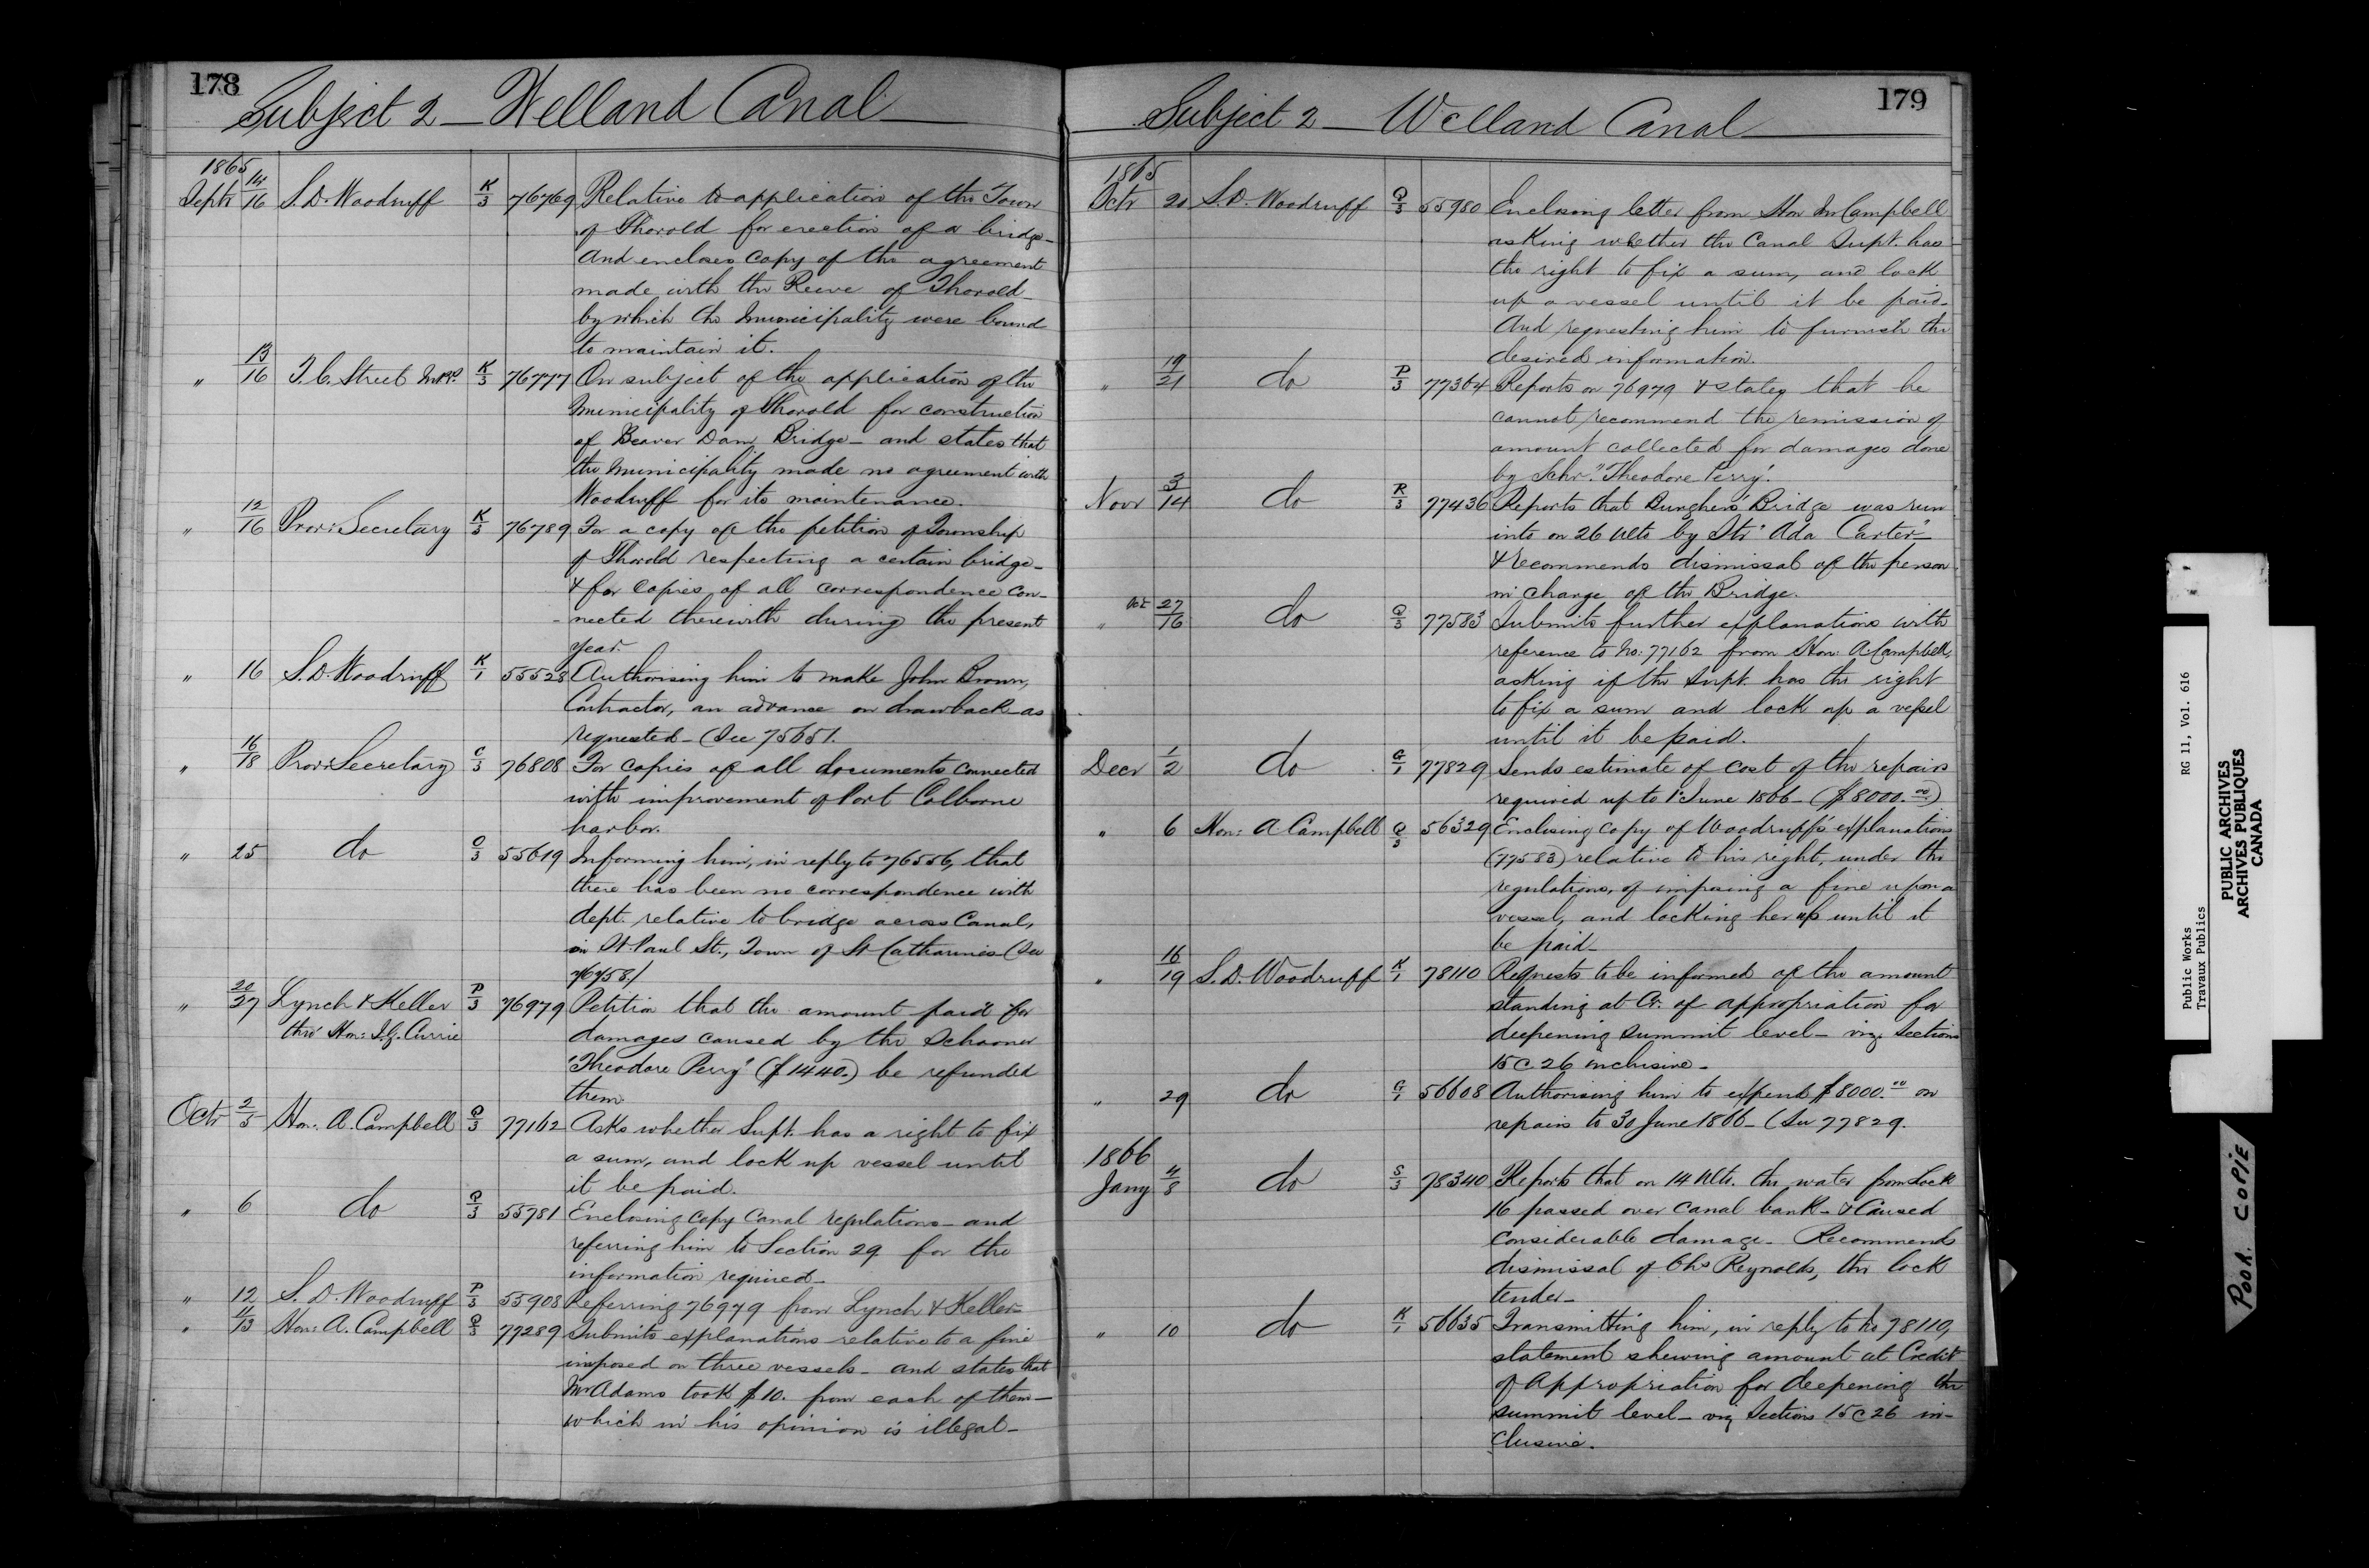 178
Subject 2 - Welland Canal
1865
Septr 14/16 S. D. Woodruff K/3 76769 Relative to application of the Town
of Thorold for erection of a bridge-
And encloses copy of the agreement
made with the Reeve of Thorold-
by which the Municipality were bound
to maintain it.
" 13/16 T. C. Street M.P.P. K/3 76777 On subject of the application of the
Municipality of Thorold for construction
of Beaver Dam Bridge - and states that
the Municipality made no agreement with
Woodruff for its maintenance.
" 12/16 Prov: Secretary K/3 76789 For a copy of the petition of Township
of Thorold respecting a certain bridge-
& for copies of all correspondence con-
nected therewith during the present
year.
" 16 S. D. Woodruff K/1 55528 Authorising him to make John Brown,
Contractor, an advance on drawback as
requested - (See 75651.
" 16/18 Prov: Secretary C/3 76808 For copies of all documents connected
with improvement of Port Colborne
harbor.
" 25 do C/3 55619 Informing him, in reply to 76556, that
there has been no correspondence with
dept. relative to bridge across Canal,
in St. Paul St., Town of St Catharines (See
76758)
" 20/27 Lynch & Keller P/3 76979 Petition that the amount paid for
thro' Hon: J. G. Currie damages caused by the Schooner
"Theodore Perry" ($1440.) be refunded
them.
Octr 2/5 Hon: A. Campbell Q/3 77162 Asks whether Supt. has a right to fix
a sum, and lock up vessel until
it be paid.
" 6 do Q/3 55781 Enclosing copy Canal regulations - and
referring him to Section 29 for the
information required -
" 12 S. D. Woodruff P/3 55908 Referring 76979 from Lynch & Keller-
" 11/13 Hon: A. Campbell Q/3 77289 Submits explanations relative to a fine
imposed on three vessels - and states that
Mr Adams took $10. from each of them -
which in his opinion is illegal -
179
Subject 2 - Welland Canal
1865
Octr 20 S. D. Woodruff Q/3 55980 Enclosing letter from Hon Mr Campbell
asking whether the Canal Supt. has
the right to fix a sum, and lock
up a vessel until it be paid-
And requesting him to furnish the
desired information.
" 19/21 do P/3 77364 Reports on 76979 & states that he
cannot recommend the remission of
amount collected for damages done
by Schr. "Theodore Perry".
Novr 3/14 do R/3 77436 Reports that Bridge was run
into on 26 ulto by Str "Ada Carter"-
& recommends dismissal of the person
in charge of the Bridge.
" Oct 27/16 do Q/3 77583 Submits further explanations with
reference to No: 77162 from Hon: A. Campbell,
asking if the Supt. has the right
to fix a sum and lock up a vessel
until it be paid.
Decr 1/2 do G/1 77829 Sends estimate of cost of the repairs
required up to 1st June 1866 - ($8000.00)
" 6 Hon: A Campbell Q/3 56329 Enclosing copy of Woodruff's explanations
(77583) relative to his right, under the
regulations, of imposing a fine upon a
vessel, and locking her up until it
be paid -
" 16/19 S. D. Woodruff K/1 78110 Requests to be informed of the amount
standing at Cr. of appropriation for
deepening summit level - viz. Sections
15 @ 26 inclusive -
" 29 do G/1 56608 Authorising him to expend $8000.00 on
repairs to 30 June 1866 - (See 77829.
1866
Jany 4/8 do S/3 78340 Reports that on 14 ulto. the water from Lock
16 passed over canal bank - & caused
considerable damage - Recommends
dismissal of Chs Reynolds, the lock
tender -
" 10 do K/1 56635 Transmitting him, in reply to No 78110,
statement shewing amount at Credit
of Appropriation for deepening the
summit level - viz Sections 15 @ 26 in-
clusive.
Public Works RG 11, Vol. 616
Travaux Publics
PUBLIC ARCHIVES
ARCHIVES PUBLIQUES
CANADA
POOR COPIE